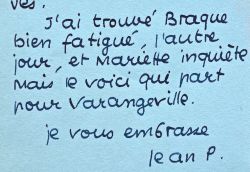 ves.
J'ai trouvé Braque
bien fatigué, l'autre
jour, et Mariette inquiète
Mais le voici qui part
pour Varangeville.
je vous embrasse
Jean P.